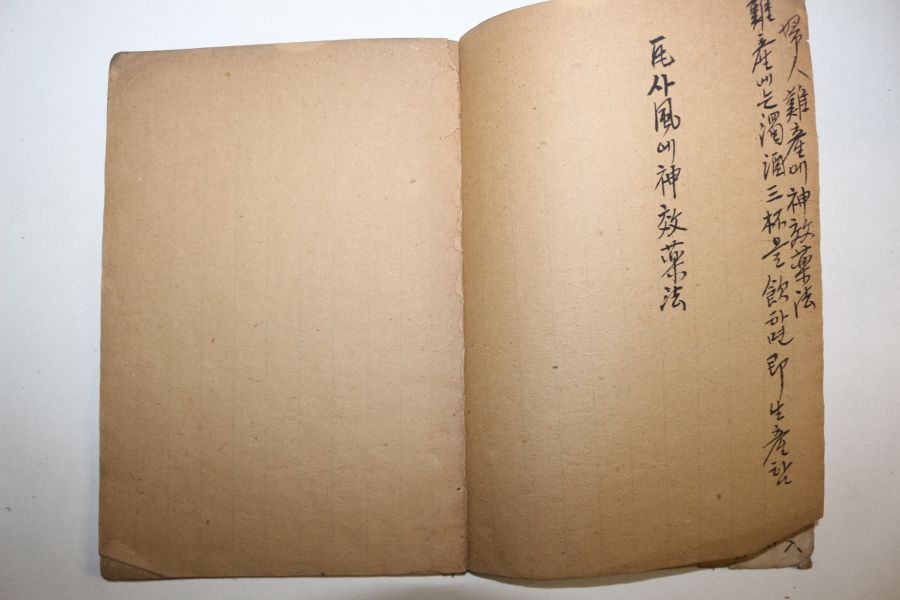 婦人難産에神效藥法
難産에는濁酒三杯를飮하면即生産함
瓦사風에神效藥法